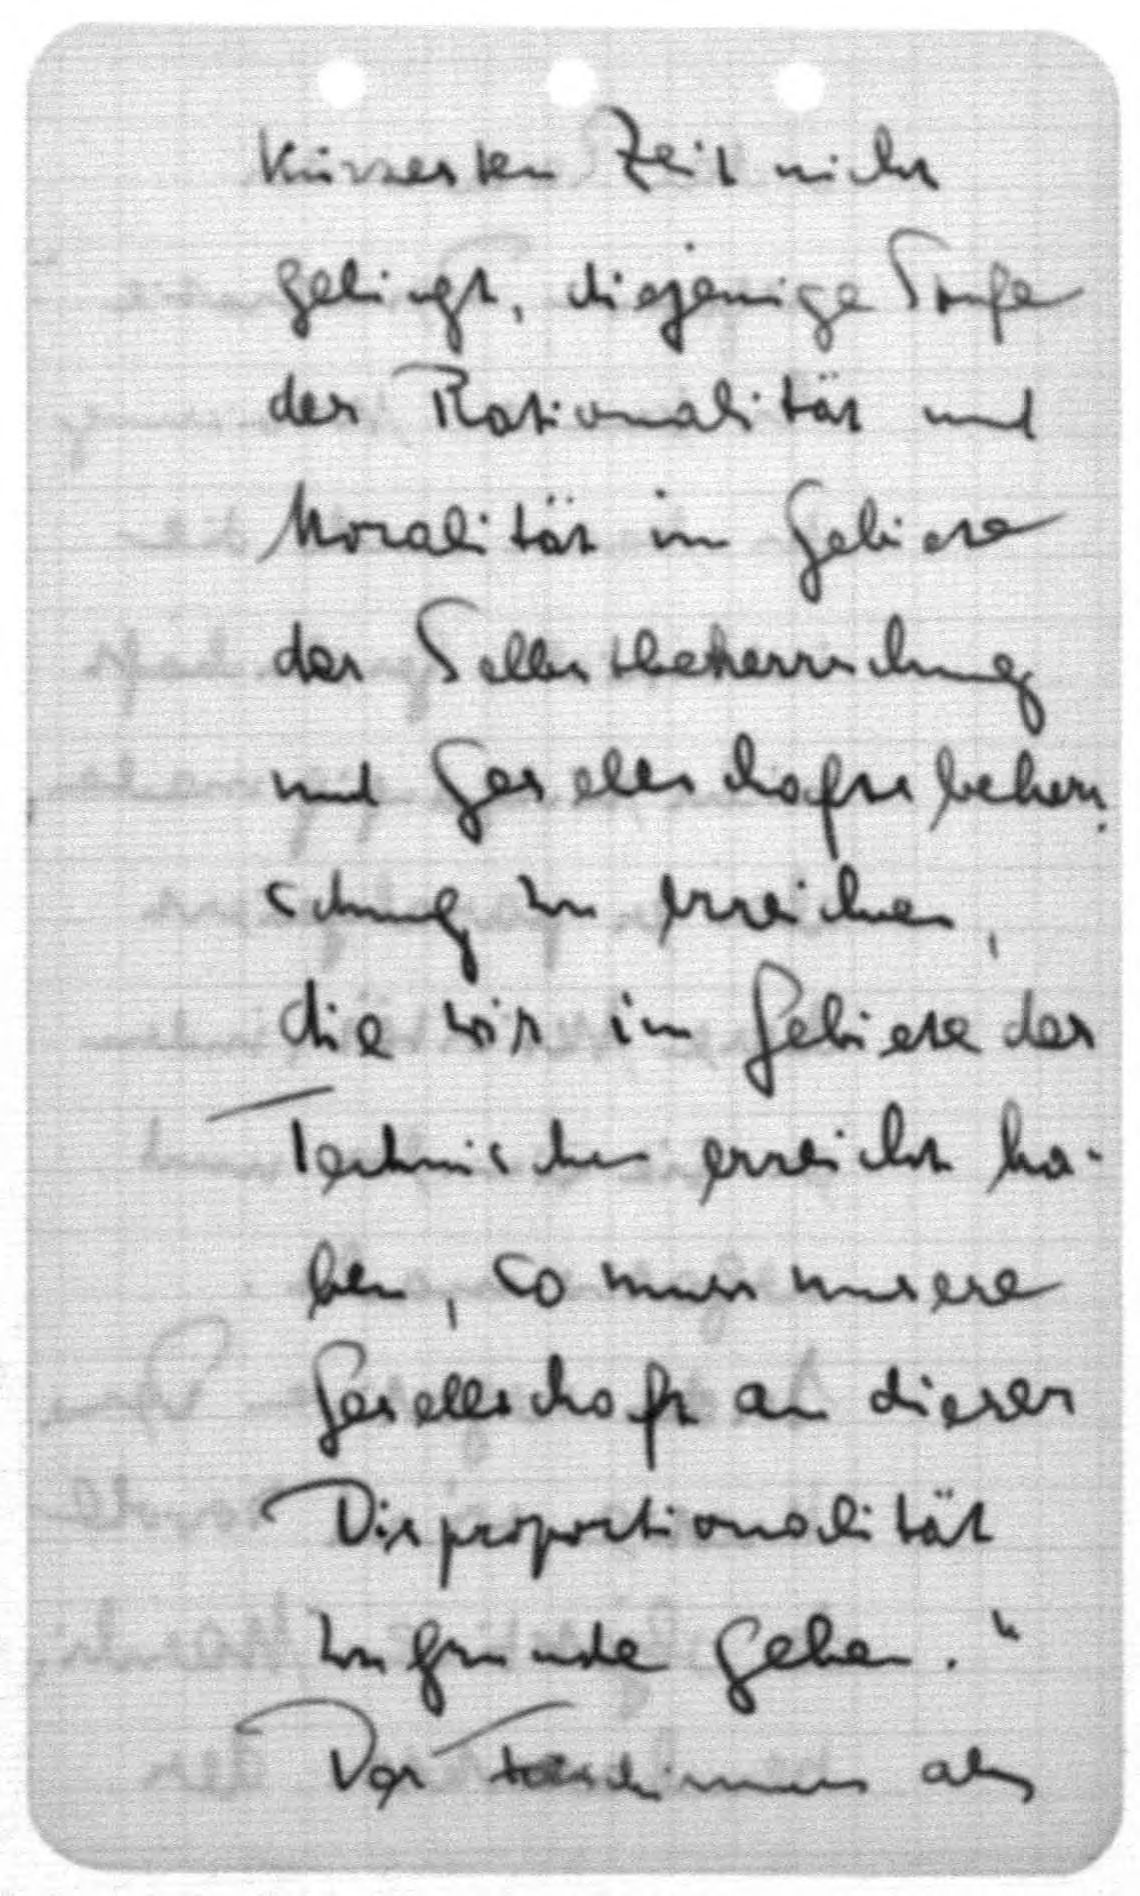 kürzesten Zeit nicht
gelingt, diejenige Stufe
der Rationalität und
Moralität im Gebiete
der Selbstbeherrschung
und Gesellschaftsbeherr-
schung zu erreichen,
die wir im Gebiete des
Technischen erreicht ha-
ben, so muss unsere
Gesellschaft an dieser
Disproportionalität
zugrunde gehen."
Der Faschismus als